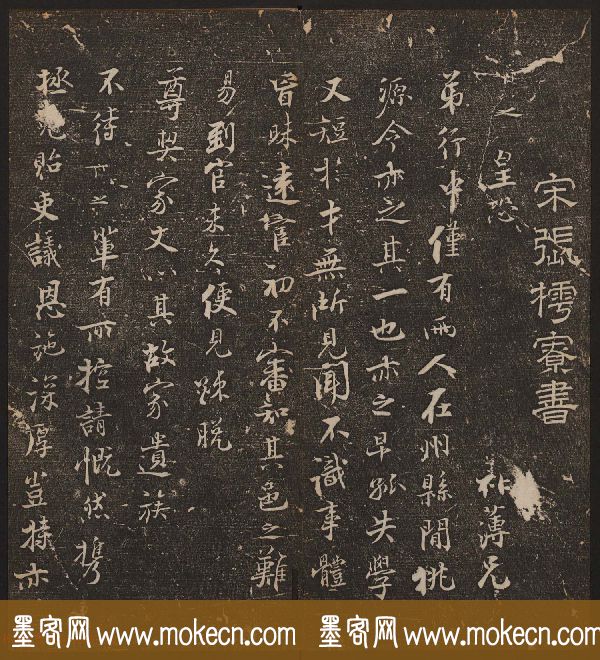 宋張樗寮書
即之皇恐 祚薄兄
弟行中僅有兩人在州縣間桃
源令亦之其一也亦之早孤失學
又短於才無所見聞不識事體
皆昧遠宦初不審知其邑之難
易到官未久便見踈脫
尊契家丈以其故家遺族
不待即之輩有所控請慨然捄
拯免貽吏議恩施深厚豈捄亦
墨客网 www.mokecn.com 墨客网 www.mokecn.com